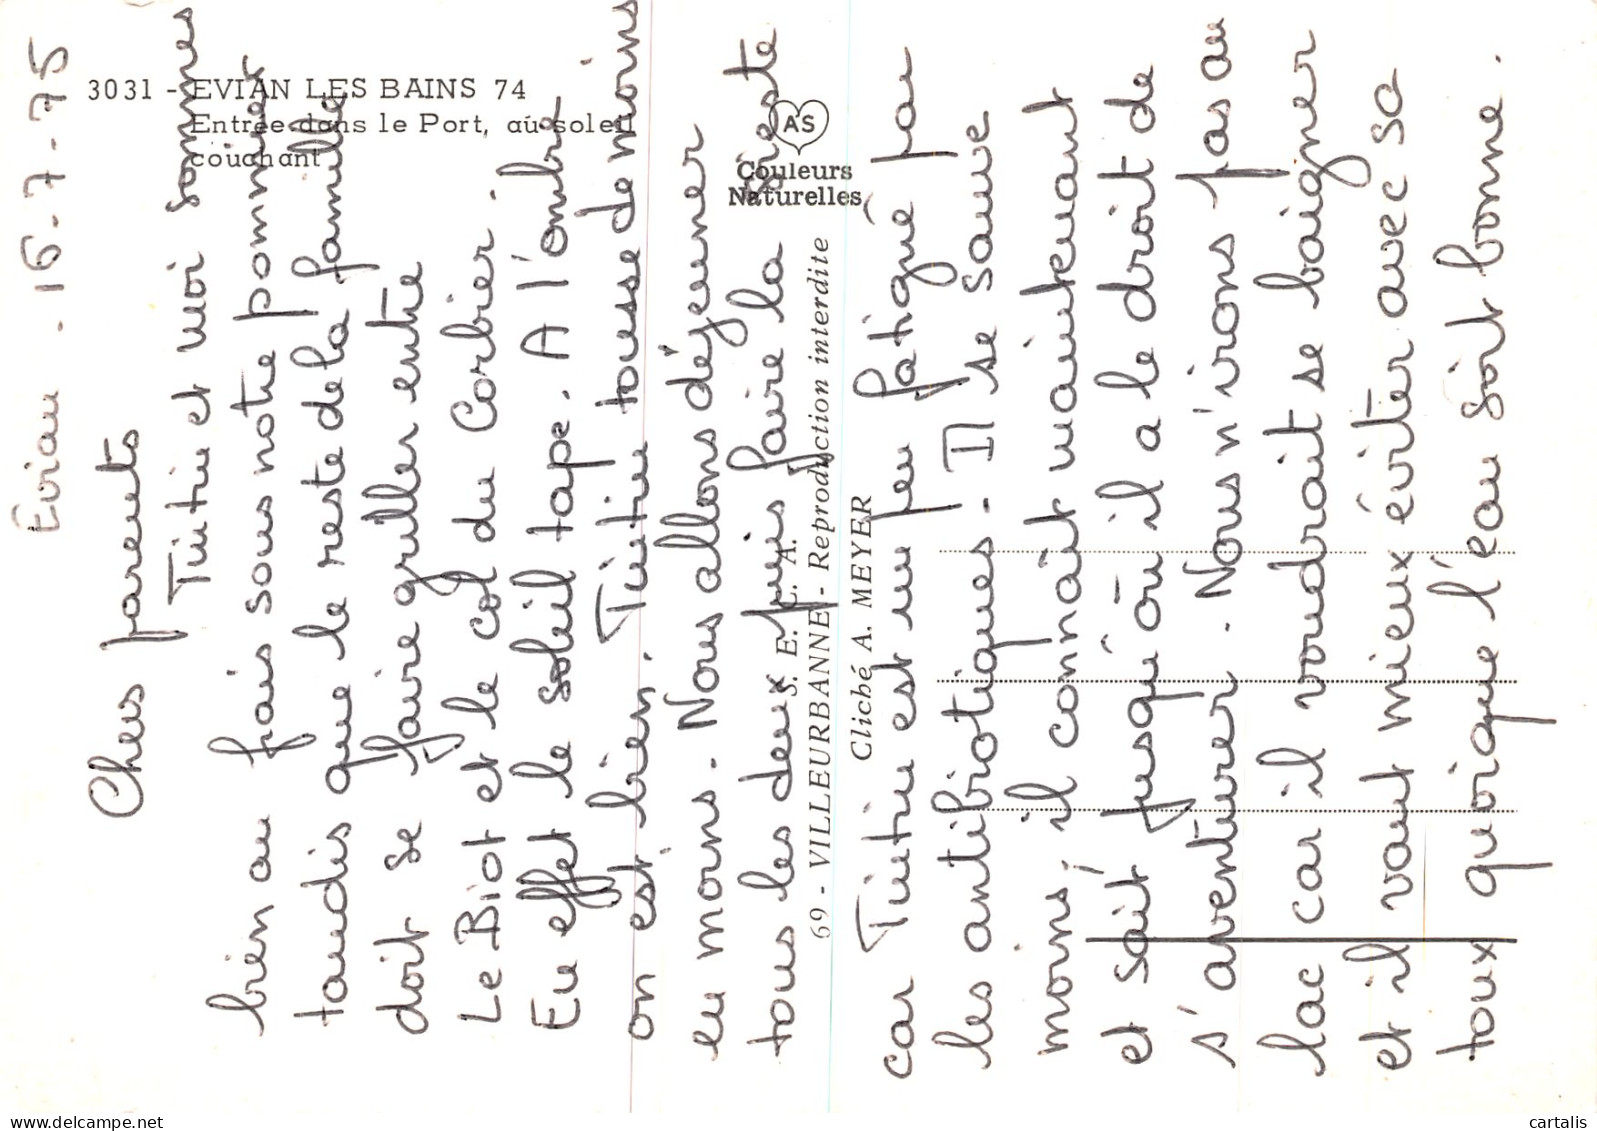 3031 - EVIAN LES BAINS 74
Entrée dans le Port, au soleil
couchant
AS
Couleurs
Naturelles
S. E. L. A.
69 - VILLEURBANNE - Reproduction interdite
Cliché A. MEYER
Evian - 16-7-75
Chers parents
Tintin et moi sommes
bien au frais sous notre pommier
tandis que le reste de la famille
doit se faire griller entre
Le Biot et le col du Corbier.
En effet le soleil tape. A l'ombre
on est bien. Tintin tousse de moins
en moins. Nous allons déjeuner
tous les deux puis faire la sieste
car Tintin est un peu fatigué par
les antibiotiques. Il se sauve
moins, il connaît maintenant
et sait jusqu'où il a le droit de
s'aventurer. Nous n'irons pas au
lac car il voudrait se baigner
et il vaut mieux éviter avec sa
toux quoique l'eau soit bonne.
cartalis